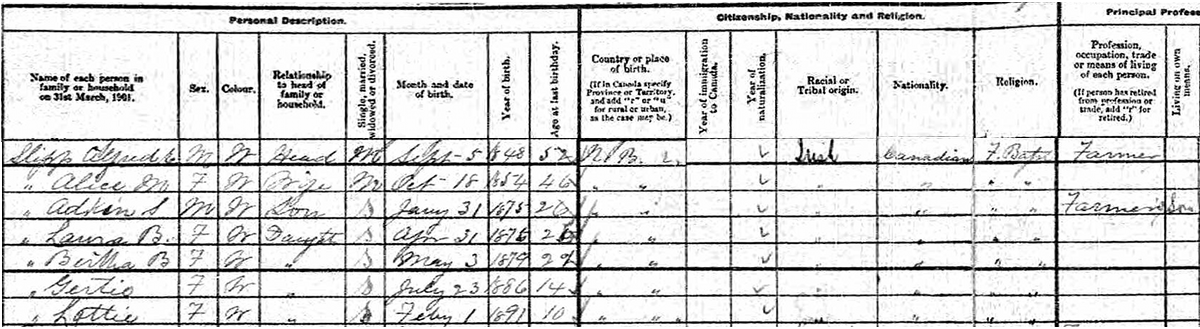 Personal Description. Citizenship, Nationality and Religion. Principal Profes
Name of each person in family or household on 31st March, 1901. Sex. Colour. Relationship to head of family or household. Single, married, widowed or divorced. Month and date of birth. Year of birth. Age at last birthday. Country or place of birth. (If in Canada specify Province or Territory, and add "r" or "u" for rural or urban, as the case may be.) Year of immigration to Canada. Year of naturalization. Racial or Tribal origin. Nationality. Religion. Profession, occupation, trade or means of living of each person. (If person has retired from profession or trade, add "r" for retired.) Living on own means.
Slipp Alfred M W Head M Sept 5 1848 52 N. B. Irish Canadian F. Bapt Farmer
" Alice M F W Wife M Oct 18 1854 46 " " " " " "
" Adkin S M W Son S Jany 31 1875 26 " " " " " " Farmers Son
" Laura B. F W Daught S Apr 31 1876 " " " " " "
" Bertha B F W " S May 3 1879 " " " " " "
" Gertie F W " S July 23 1886 14 " " " " " "
" Lottie F W " S Feby 1 1891 10 " " " " "